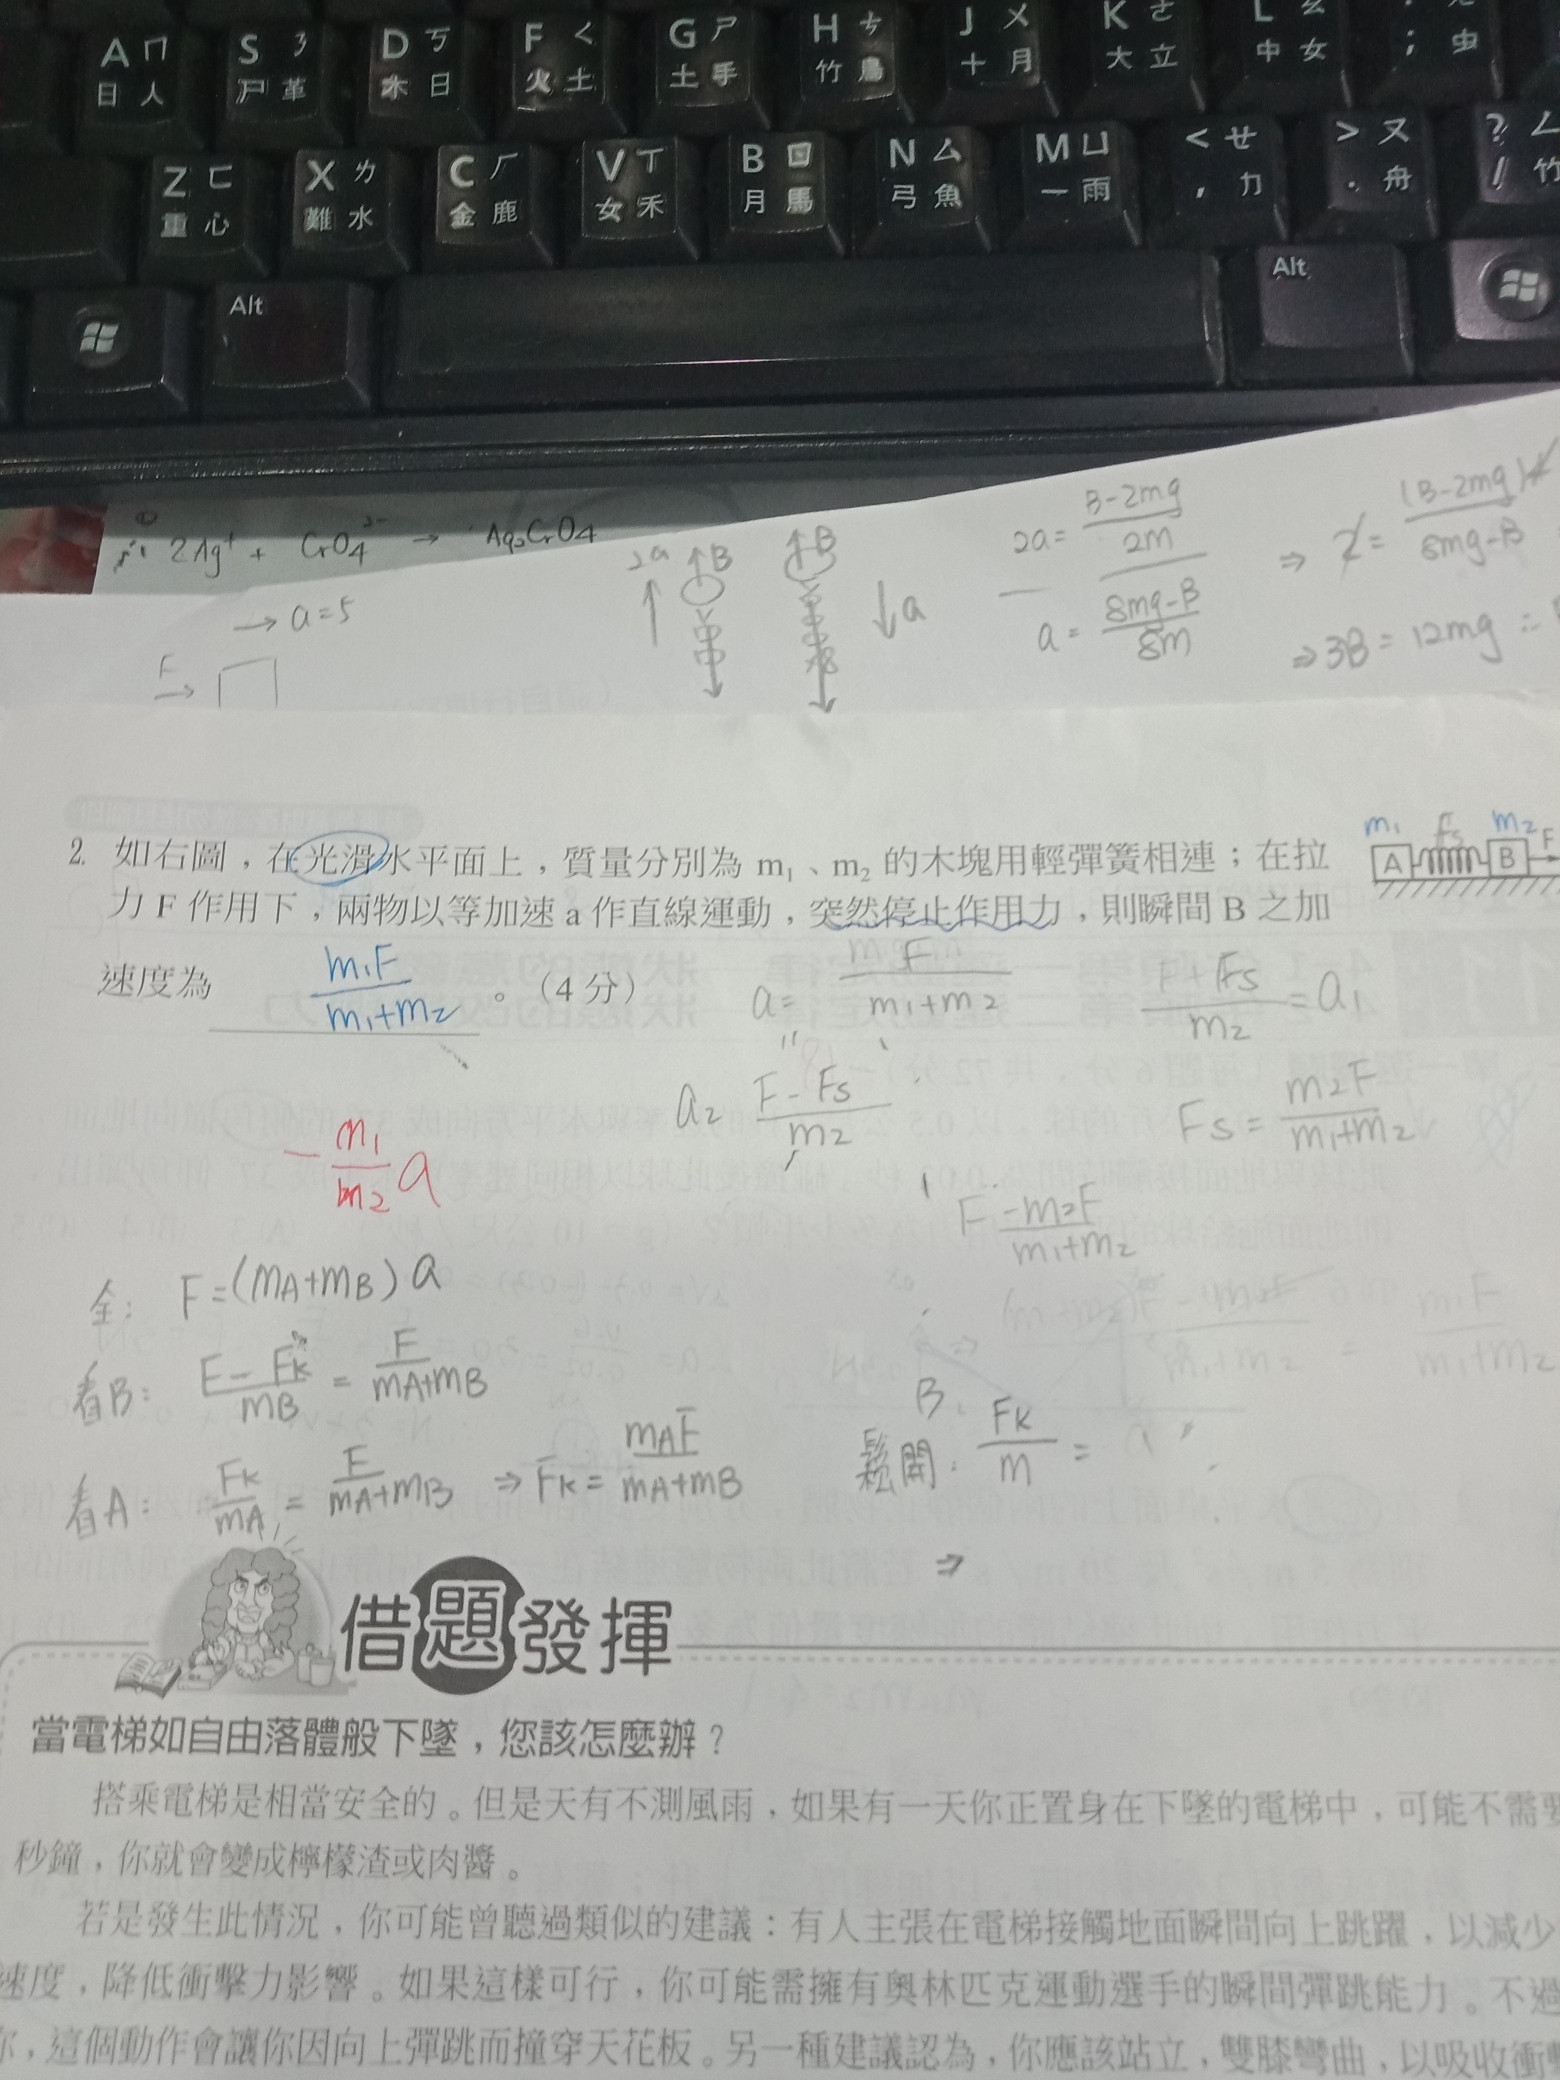 A ㄇ 日 人
S ㄋ 尸 革
D ㄎ 木 日
F ㄑ 火 土
G ㄕ 土 手
H ㄘ 竹 鳥
J ㄨ 十 月
K ㄜ 大 立
L ㄠ 中 女
; 虫
Z ㄈ 重 心
X ㄌ 難 水
C ㄏ 金 鹿
V ㄒ 女 禾
B ㄖ 月 馬
N ㄙ 弓 魚
M ㄩ 一 雨
< ㄝ , 力
> ㄡ . 舟
? ㄥ / 竹
Alt
Alt
2Ag⁺ + CrO4²⁻ → Ag2CrO4
→ a=5
F →
2a ↑ ↑B ↑B ↓a
2a = (B-2mg)/2m
a = (8mg-B)/8m
⇒ 2 = (B-2mg)4/(8mg-B)
⇒3B = 12mg ∴
2. 如右圖，在光滑水平面上，質量分別為 m₁、m₂ 的木塊用輕彈簧相連；在拉
力 F 作用下，兩物以等加速 a 作直線運動，突然停止作用力，則瞬間 B 之加
速度為 m₁F/(m₁+m₂) 。（4 分）
m₁ Fs m₂ F
A B
a = F/(m1+m2)
(F+Fs)/m2 = a1
a2 (F-Fs)/m2
Fs = m2F/(m1+m2)
F -m2F/(m1+m2)
- m₁/m₂ a
全: F=(mA+mB)a
看B: (F-Fk)/mB = F/(mA+mB)
看A: Fk/mA = F/(mA+mB) ⇒ Fk = mAF/(mA+mB)
B
鬆開: Fk/m =
⇒
借題發揮
當電梯如自由落體般下墜，您該怎麼辦？
搭乘電梯是相當安全的。但是天有不測風雨，如果有一天你正置身在下墜的電梯中，可能不需要
秒鐘，你就會變成檸檬渣或肉醬。
若是發生此情況，你可能曾聽過類似的建議：有人主張在電梯接觸地面瞬間向上跳躍，以減少
速度，降低衝擊力影響。如果這樣可行，你可能需擁有奧林匹克運動選手的瞬間彈跳能力。不過
你，這個動作會讓你因向上彈跳而撞穿天花板。另一種建議認為，你應該站立，雙膝彎曲，以吸收衝擊